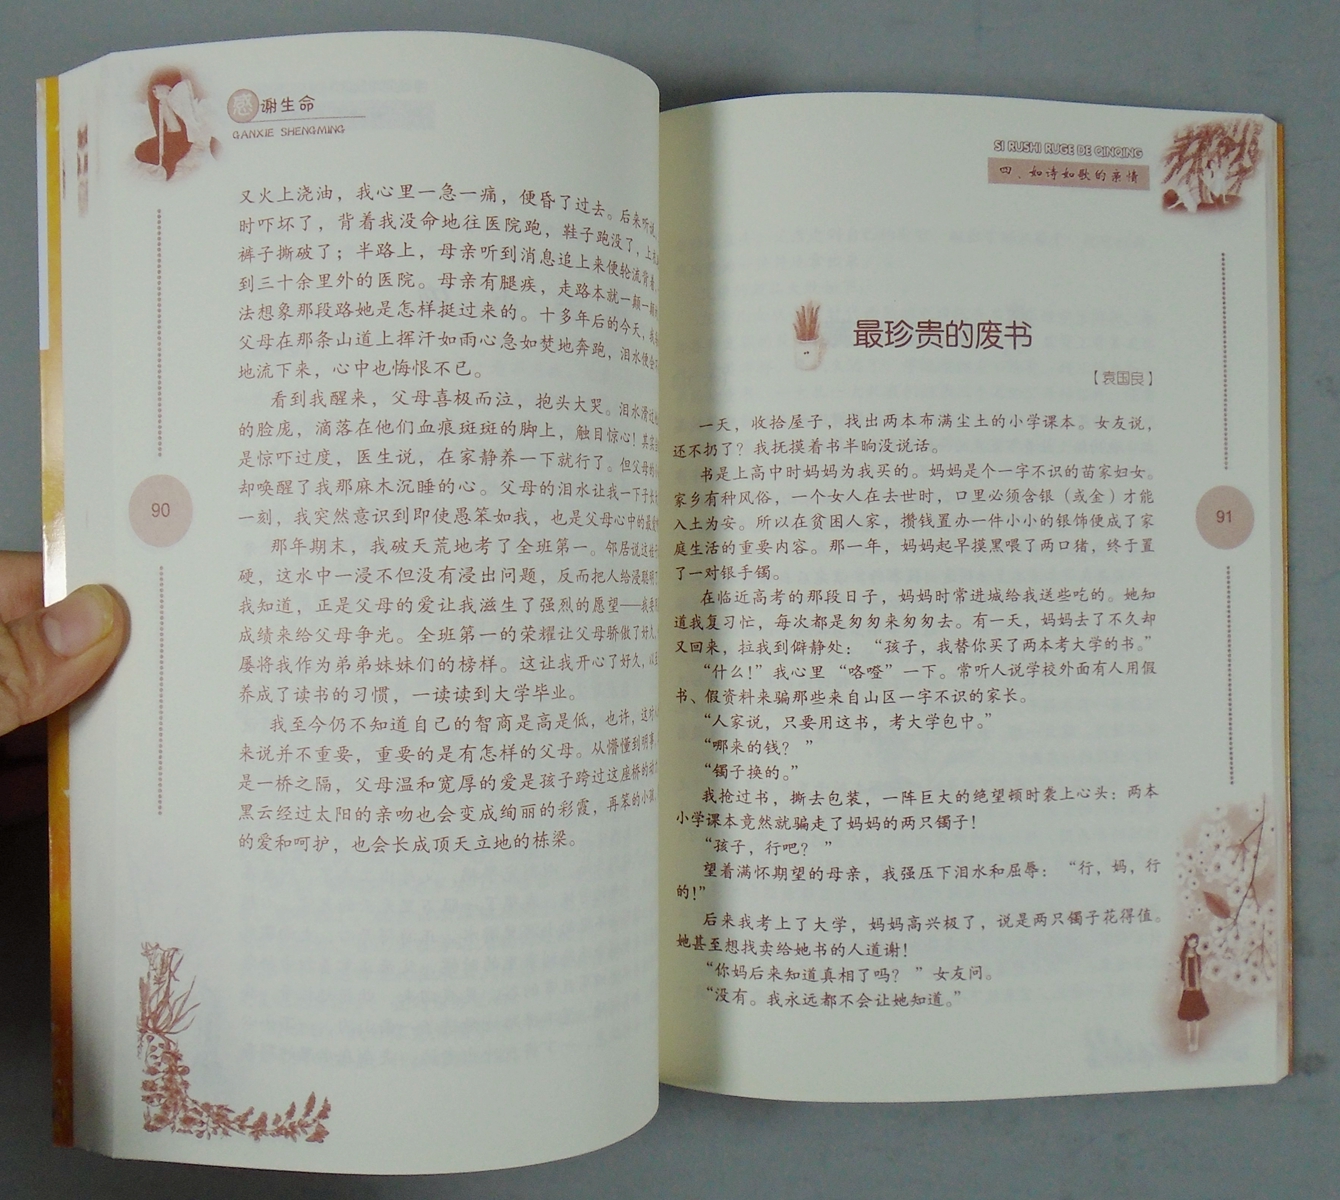 感谢生命
GANXIE SHENGMING
又火上浇油，我心里一急一痛，便昏了过去。后来听说，
时吓坏了，背着我没命地往医院跑，鞋子跑没了，上
裤子撕破了；半路上，母亲听到消息追上来便轮流背着
到三十余里外的医院。母亲有腿疾，走路本就一颠一颠
法想象那段路她是怎样挺过来的。十多年后的今天，
父母在那条山道上挥汗如雨心急如焚地奔跑，泪水便会
地流下来，心中也悔恨不已。
看到我醒来，父母喜极而泣，抱头大哭。泪水滑过
的脸庞，滴落在他们血痕斑斑的脚上，触目惊心！其实
是惊吓过度，医生说，在家静养一下就行了。但父母的
却唤醒了我那麻木沉睡的心。父母的泪水让我一下子长
一刻，我突然意识到即使愚笨如我，也是父母心中的最
那年期末，我破天荒地考了全班第一。邻居说这
硬，这水中一浸不但没有浸出问题，反而把人给浸聪明了
我知道，正是父母的爱让我滋生了强烈的愿望——我要
成绩来给父母争光。全班第一的荣耀让父母骄傲了好久，
屡将我作为弟弟妹妹们的榜样。这让我开心了好久，
养成了读书的习惯，一读读到大学毕业。
我至今仍不知道自己的智商是高是低，也许，这
来说并不重要，重要的是有怎样的父母。从懵懂到明事，
是一桥之隔，父母温和宽厚的爱是孩子跨过这座桥的
黑云经过太阳的亲吻也会变成绚丽的彩霞，再笨的小孩，
的爱和呵护，也会长成顶天立地的栋梁。
90
SI RUSHI RUGE DE QINQING
四、如诗如歌的亲情
最珍贵的废书
【袁国良】
一天，收拾屋子，找出两本布满尘土的小学课本。女友说，
还不扔了？我抚摸着书半晌没说话。
书是上高中时妈妈为我买的。妈妈是个一字不识的苗家妇女。
家乡有种风俗，一个女人在去世时，口里必须含银（或金）才能
入土为安。所以在贫困人家，攒钱置办一件小小的银饰便成了家
庭生活的重要内容。那一年，妈妈起早摸黑喂了两口猪，终于置
了一对银手镯。
在临近高考的那段日子，妈妈时常进城给我送些吃的。她知
道我复习忙，每次都是匆匆来匆匆去。有一天，妈妈去了不久却
又回来，拉我到僻静处：“孩子，我替你买了两本考大学的书。”
“什么！”我心里“咯噔”一下。常听人说学校外面有人用假
书、假资料来骗那些来自山区一字不识的家长。
“人家说，只要用这书，考大学包中。”
“哪来的钱？”
“镯子换的。”
我抢过书，撕去包装，一阵巨大的绝望顿时袭上心头：两本
小学课本竟然就骗走了妈妈的两只镯子！
“孩子，行吧？”
望着满怀期望的母亲，我强压下泪水和屈辱：“行，妈，行
的！”
后来我考上了大学，妈妈高兴极了，说是两只镯子花得值。
她甚至想找卖给她书的人道谢！
“你妈后来知道真相了吗？”女友问。
“没有。我永远都不会让她知道。”
91